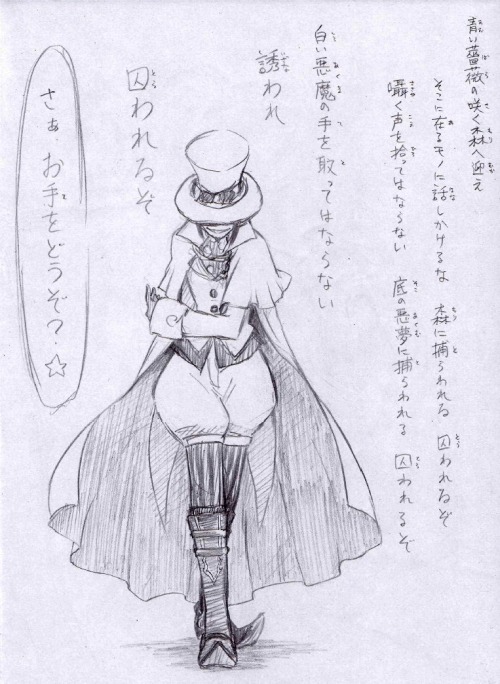 青い薔薇の咲く森へ迎え
そこに在るモノに話しかけるな 森に捕らわれる 囚われるぞ
囁く声を拾ってはならない 底の悪夢に捕らわれる 囚われるぞ
白い悪魔の手を取ってはならない
誘われ
囚われるぞ
さぁ お手をどうぞ？☆